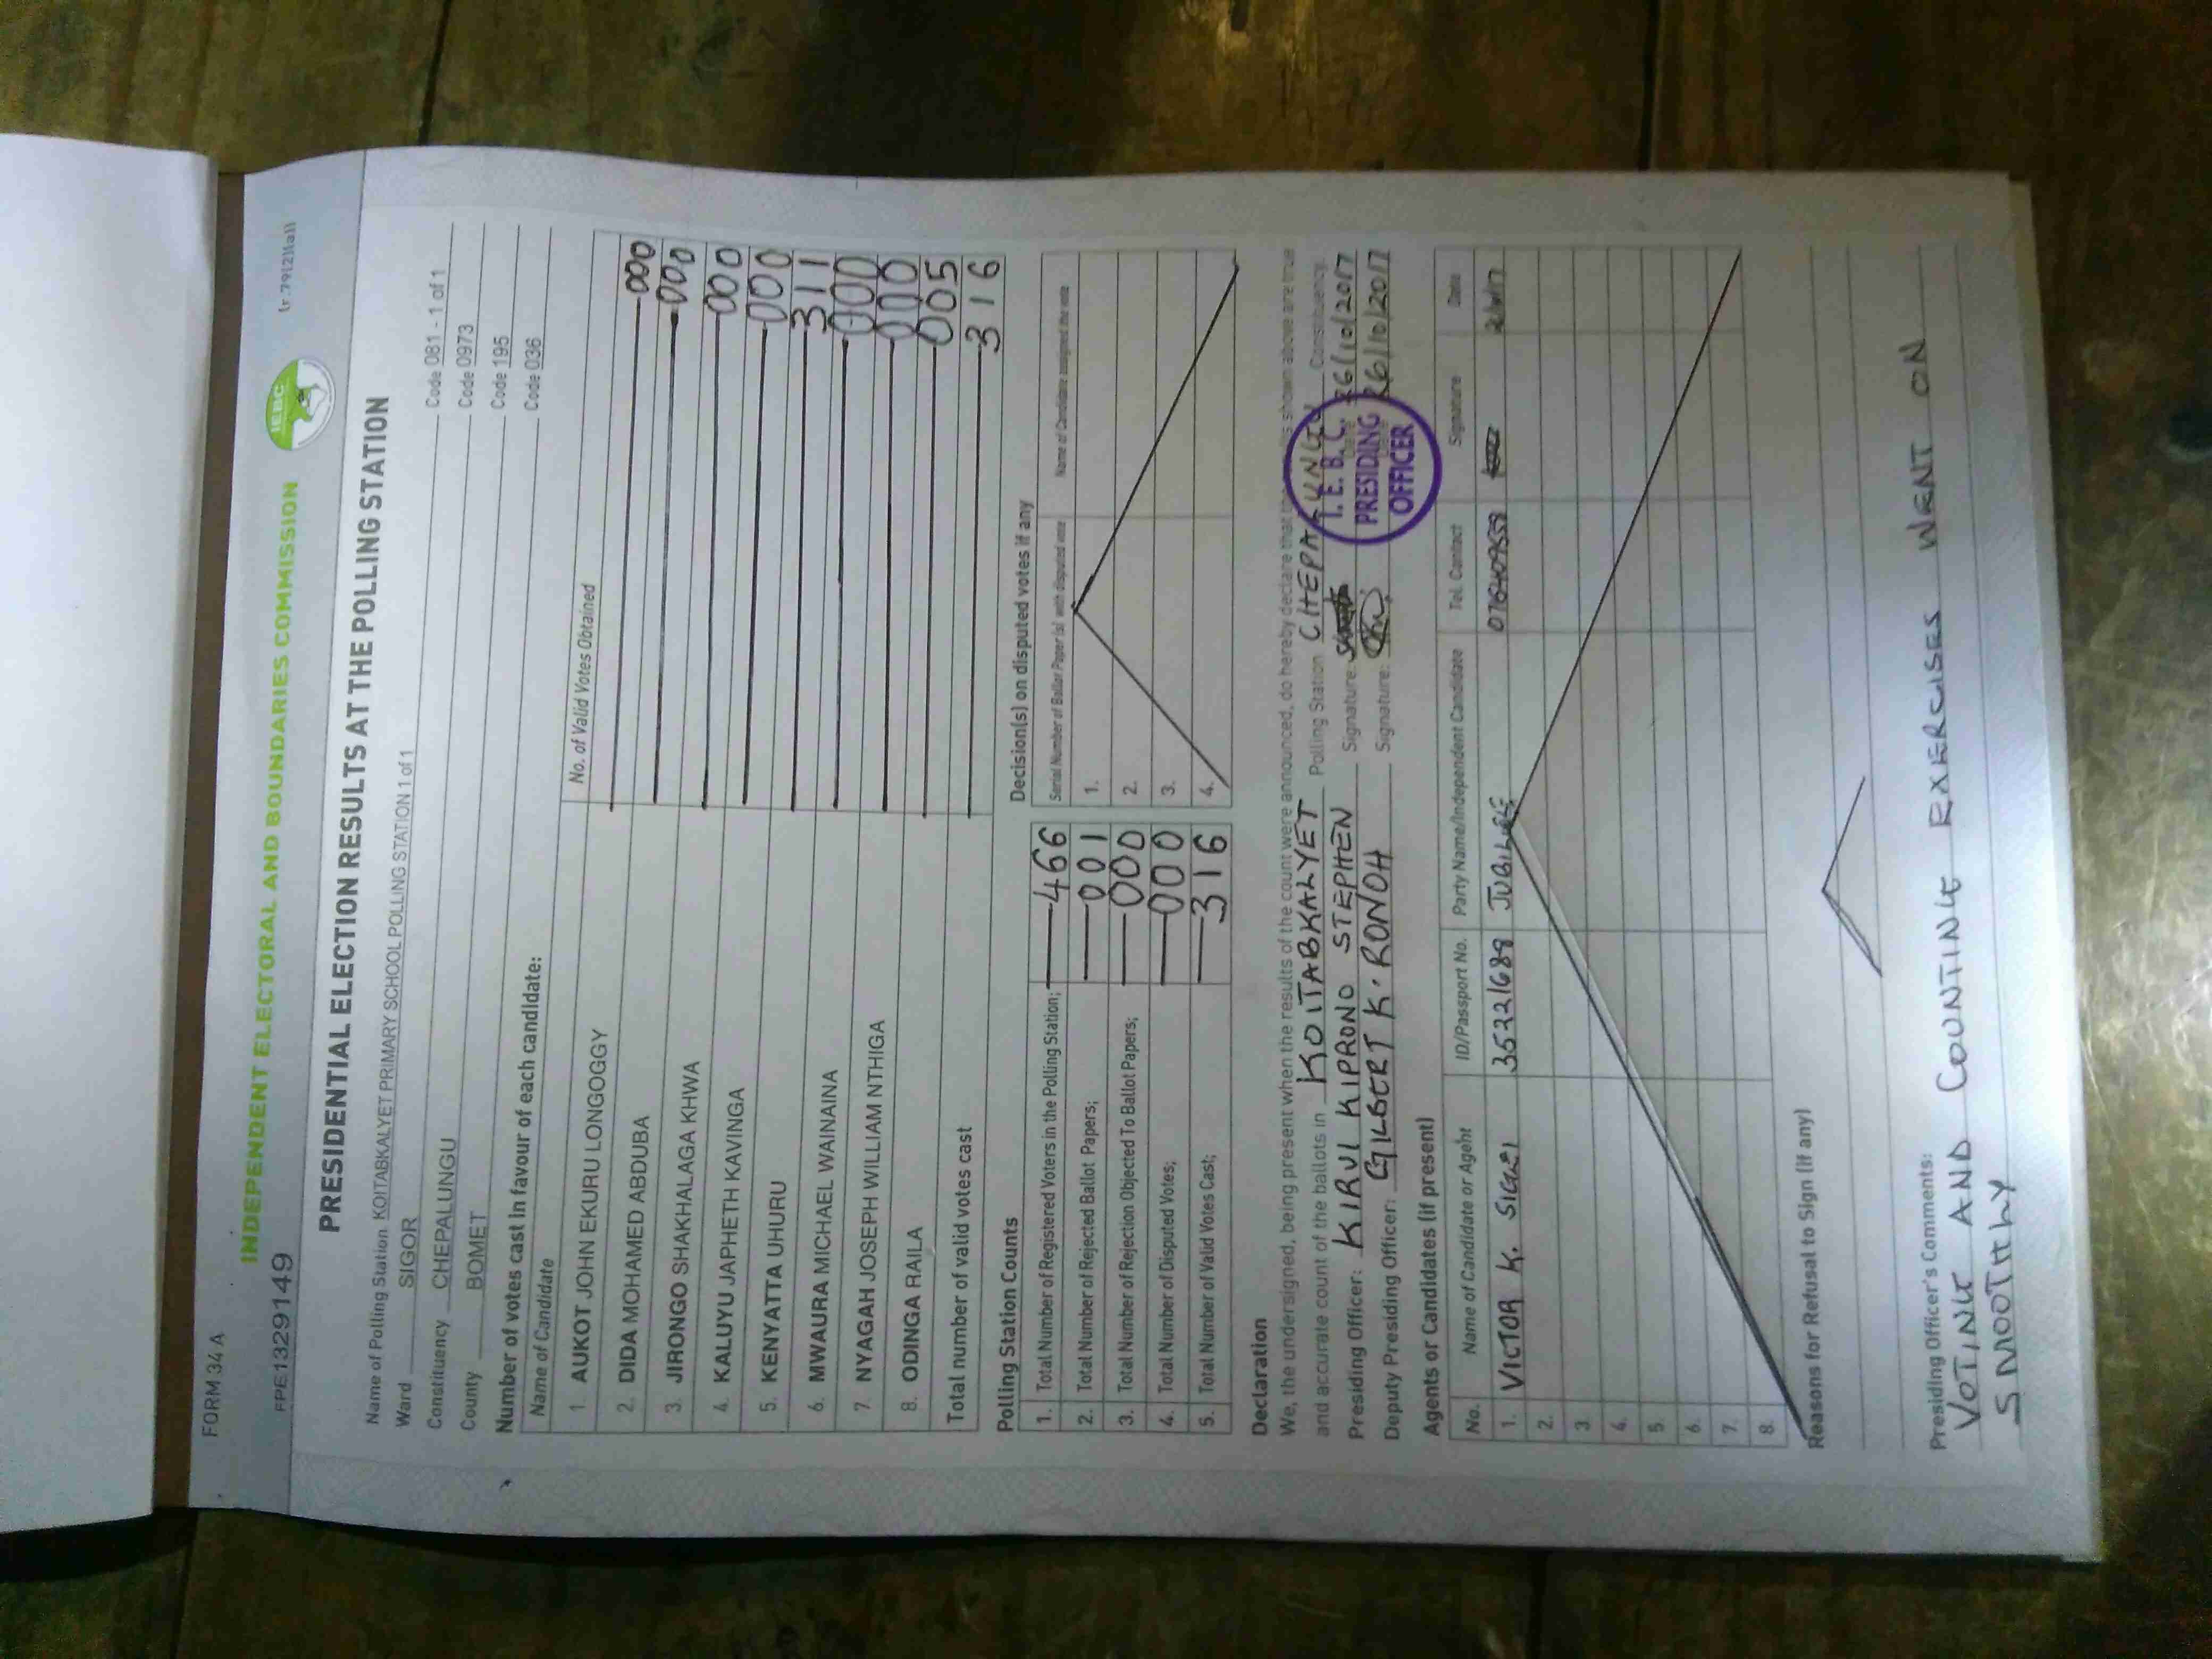 FORM 34 A
INDEPENDENT ELECTORAL AND BOUNDARIES COMMISSION
IEBC
(r.79(2)(a))
FPE1329149
PRESIDENTIAL ELECTION RESULTS AT THE POLLING STATION
Name of Polling Station KOITABKALYET PRIMARY SCHOOL POLLING STATION 1 of 1 Code 081 - 1 of 1
Ward SIGOR Code 0973
Constituency CHEPALUNGU Code 195
County BOMET Code 036
Number of votes cast in favour of each candidate:
Name of Candidate No. of Valid Votes Obtained
1. AUKOT JOHN EKURU LONGOGGY 000
2. DIDA MOHAMED ABDUBA 000
3. JIRONGO SHAKHALAGA KHWA 000
4. KALUYU JAPHETH KAVINGA 000
5. KENYATTA UHURU 311
6. MWAURA MICHAEL WAINAINA 000
7. NYAGAH JOSEPH WILLIAM NTHIGA 000
8. ODINGA RAILA 005
Total number of valid votes cast 316
Polling Station Counts
1. Total Number of Registered Voters in the Polling Station; 466
2. Total Number of Rejected Ballot Papers; 001
3. Total Number of Rejection Objected To Ballot Papers; 000
4. Total Number of Disputed Votes; 000
5. Total Number of Valid Votes Cast; 316
Decision(s) on disputed votes if any
Serial Number of Ballot Paper(s) with disputed vote Name of Candidate assigned the vote
1.
2.
3.
4.
Declaration
We, the undersigned, being present when the results of the count were announced, do hereby declare that the shown above are true
and accurate count of the ballots in KOITABKALYET Polling Station CHEPALUNGU Constituency.
Presiding Officer: KIRUI KIPRONO STEPHEN Signature: 26/10/2017
Deputy Presiding Officer: GILBERT K. RONOH Signature: 26/10/2017
I. E. B. C.
PRESIDING
OFFICER
Agents or Candidates (if present)
No. Name of Candidate or Agent ID/Passport No. Party Name/Independent Candidate Tel. Contact Signature Date
1. VICTOR K. SIGEI 35221689 JUBILEE
2.
3.
4.
5.
6.
7.
8.
Reasons for Refusal to Sign (if any)
Presiding Officer's Comments:
VOTING AND COUNTING EXERCISES WENT ON
SMOOTHLY